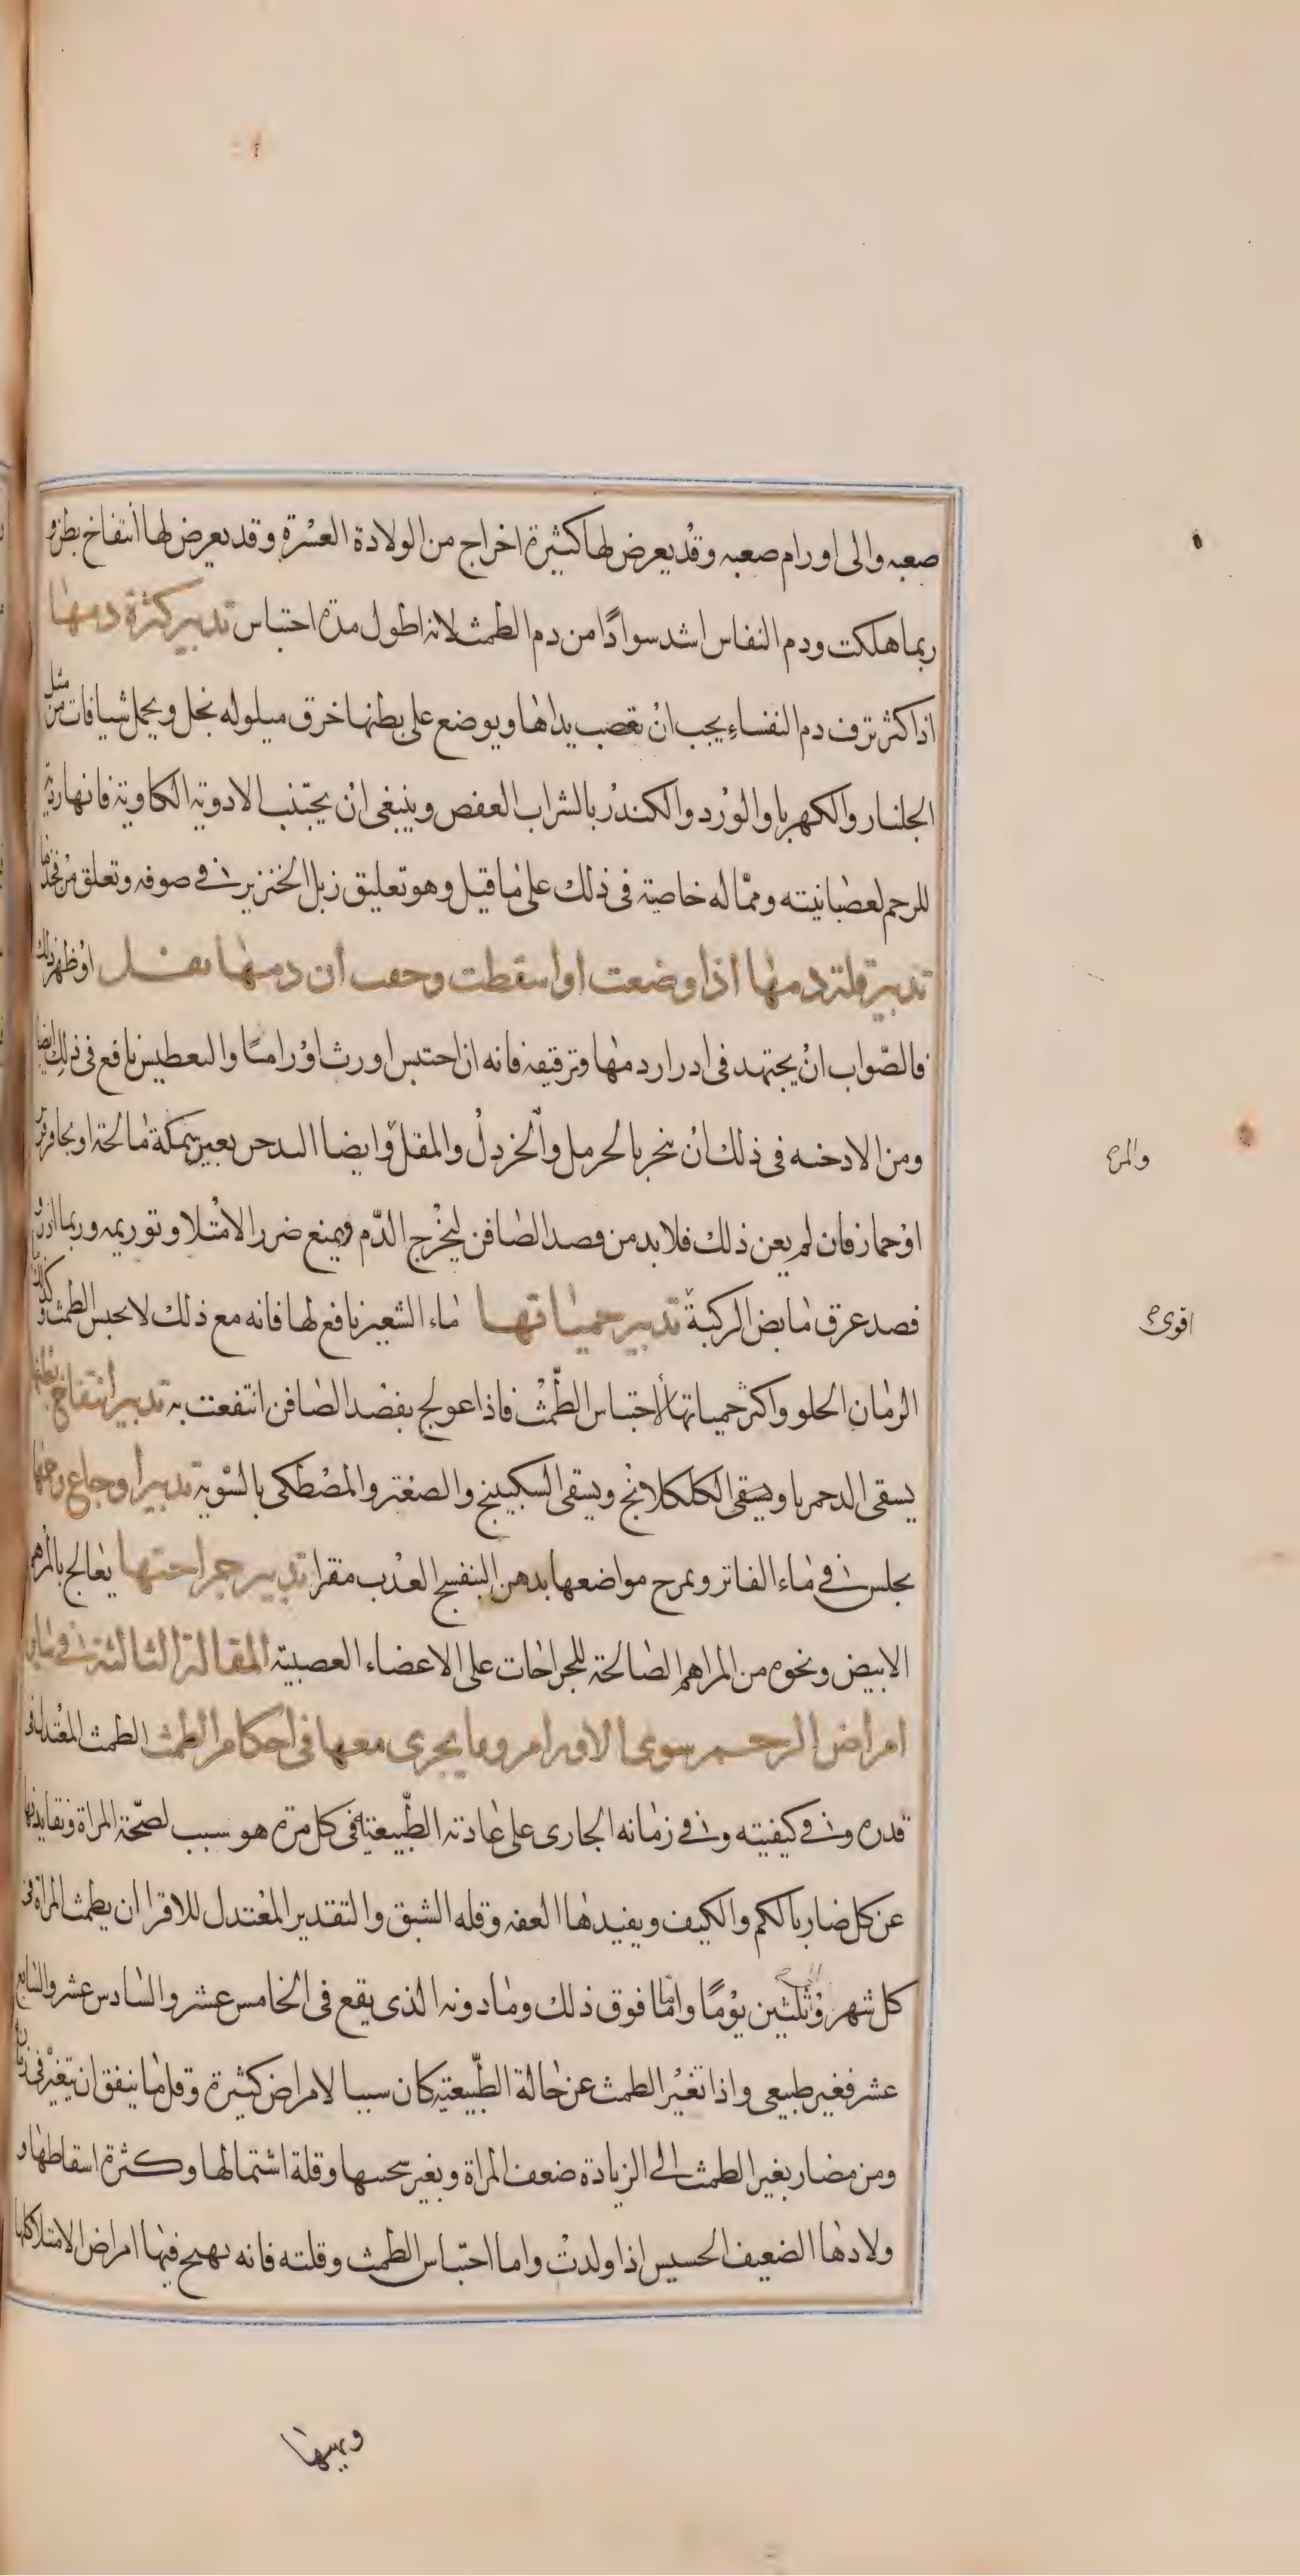 صعبه والى اورام صعبه وقد يعرض لها كثيرة اخراج من الولادة العسرة وقد يعرض لها انتفاخ بطن و
ربما هلكت ودم النفاس اشد سوادًا من دم الطمث لانه اطول مدة احتباس تدبير كثرة دمها
اذا كثر نزف دم النفساء يجب ان تعصب يداها ويوضع على بطنها خرق مبلوله بخل ويحمل شيافات من مثل
الجلنار والكهربا والورد والكندر بالشراب العفص وينبغى ان يجتنب الادوية الكاوية فانها ردية
للرحم لعصبانيته ومما له خاصية فى ذلك على ما قيل وهو تعليق زبل الخنزير فى صوفه وتعلق من فخذها
تدبير قلة دمها اذا وضعت او اسقطت وخفت ان دمها يقل او ظهر ذلك
فالصواب ان يجتهد فى ادرار دمها وترقيقه فانه ان احتبس اورث اورامًا والتعطيس نافع فى ذلك ايضا
ومن الادخنه فى ذلك ان تبخر بالحرمل والخردل والمقل وايضا التدخين بعين سمكة مالحة او بحافر فرس
او حمار فان لم يعن ذلك فلا بد من فصد الصافن ليخرج الدم ويمنع ضرر الامتلا وتوريمه وربما ادر و
فصد عرق مابض الركبة تدبير حمياتها ماء الشعير نافع لها فانه مع ذلك لا يحبس الطمث وكذلك
الرمان الحلو واكثر حمياتها لاحتباس الطمث فاذا عولج بفصد الصافن انتفعت به تدبير انتفاخ بطنها
يسقى الدحمرنا ويسقى الكلكلانج ويسقى السكبينج والصعتر والمصطكى بالسوية تدبير اوجاع رحمها
يجلس فى ماء الفاتر ويمرخ مواضعها بدهن البنفسج العذب مفترا تدبير جراحتها يعالج بالمرهم
الابيض ونحوه من المراهم الصالحة للجراحات على الاعضاء العصبية المقالة الثالثة فى سائر
امراض الرحم سوى الاورام وما يجرى معها فى احكام الطمث الطمث المعتدل فى
قدره وفى كيفيته وفى زمانه الجارى على عادته الطبيعية فى كل مرة هو سبب لصحة المراة ونقا بدنها
عن كل ضار بالكم والكيف ويفيدها العفه وقله الشبق والتقدير المعتدل للاقرا ان يطمث المراة فى
كل شهر وثلثين يومًا واما فوق ذلك وما دونه الذى يقع فى الخامس عشر والسادس عشر والسابع
عشر فغير طبيعى واذا تغير الطمث عن حالة الطبيعية كان سببا لامراض كثيرة وقل ما يتفق ان يتغير فى زمانه
ومن مضار تغير الطمث الى الزيادة ضعف المراة وتغير سحنتها وقلة اشتمالها وكثرة اسقاطها و
ولادها الضعيف الخسيس اذا ولدت واما احتباس الطمث وقلته فانه يهيج فيها امراض الامتلا كلها
والمره
اقوى
ويهيها